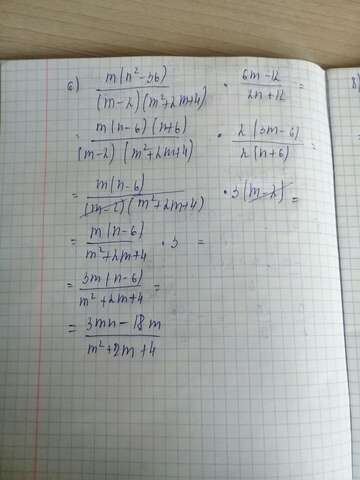 б) m(n²-36)/(m-2)(m²+2m+4) · 6m-12/2n+12 =
= m(n-6)(n+6)/(m-2)(m²+2m+4) · 2(3m-6)/2(n+6) =
= m(n-6)/(m-2)(m²+2m+4) · 3(m-2) =
= m(n-6)/m²+2m+4 · 3 =
= 3m(n-6)/m²+2m+4 =
= 3mn-18m/m²+2m+4